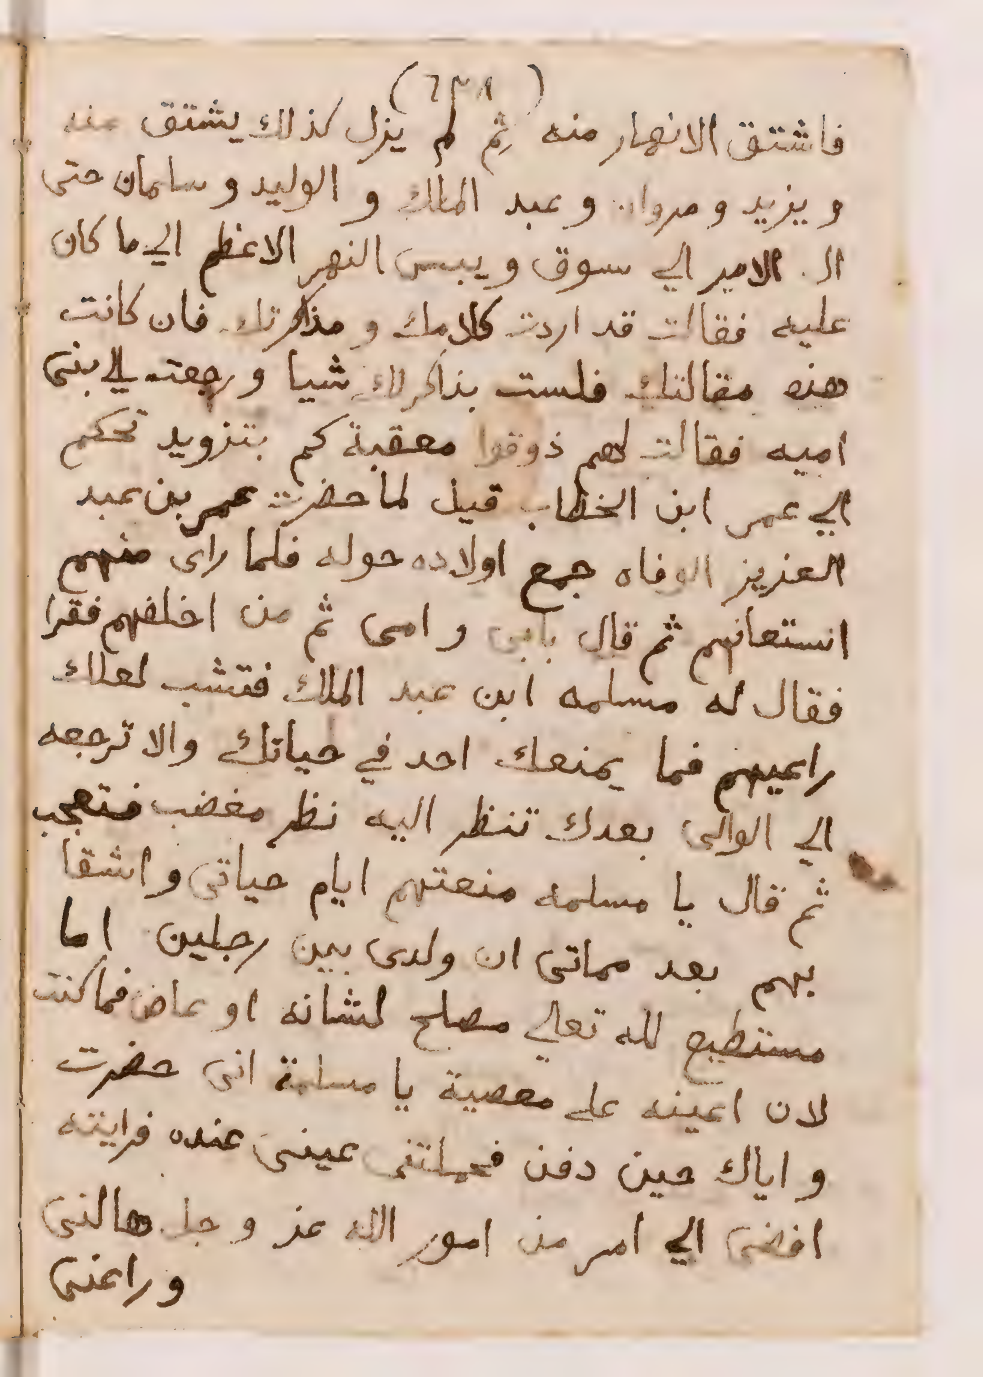 (٦٣٨)
فاشتق الانهار منه ثم لم يزل كذلك يشتق منه
و يزيد و مروان و عبد الملك و الوليد و سلمان حتى
ال. الامر الي سوق و يبس النهر الاعظم الي ما كان
عليه فقالت قد اردت كلامك و مذاكرتك فان كانت
هذه مقالتك فلست بذاكر لك شيا و رجعت الي بنى
اميه فقالت لهم ذوقوا معقبة كم بتزويد تحكم
الي عمر ابن الخطاب قيل لما حضرت عمر بن عبد
العزيز الوفاه جمع اولاده حوله فلما راى منهم
استعانهم ثم قال بابى و امى ثم من اخلفهم فقرا
فقال له مسلمه ابن عبد الملك فتشب لعلك
راعيهم فما يمنعك احد في حياتك والا ترجعه
الي الوالى بعدك تنظر اليه نظر مغضب فتعجب
ثم قال يا مسلمه منعتهم ايام حياتى و اشقا
بهم بعد مماتى ان ولدى بين رجلين اما
مستطيع لله تعالي مصلح لشانه او عاص فما كنت
لان اعينه على معصية يا مسلمة انى حضرت
و اياك حين دفن فحملتنى عينى عنده فرايته
افضى الي امر من امور الله عز و جل هالنى
و راعنى